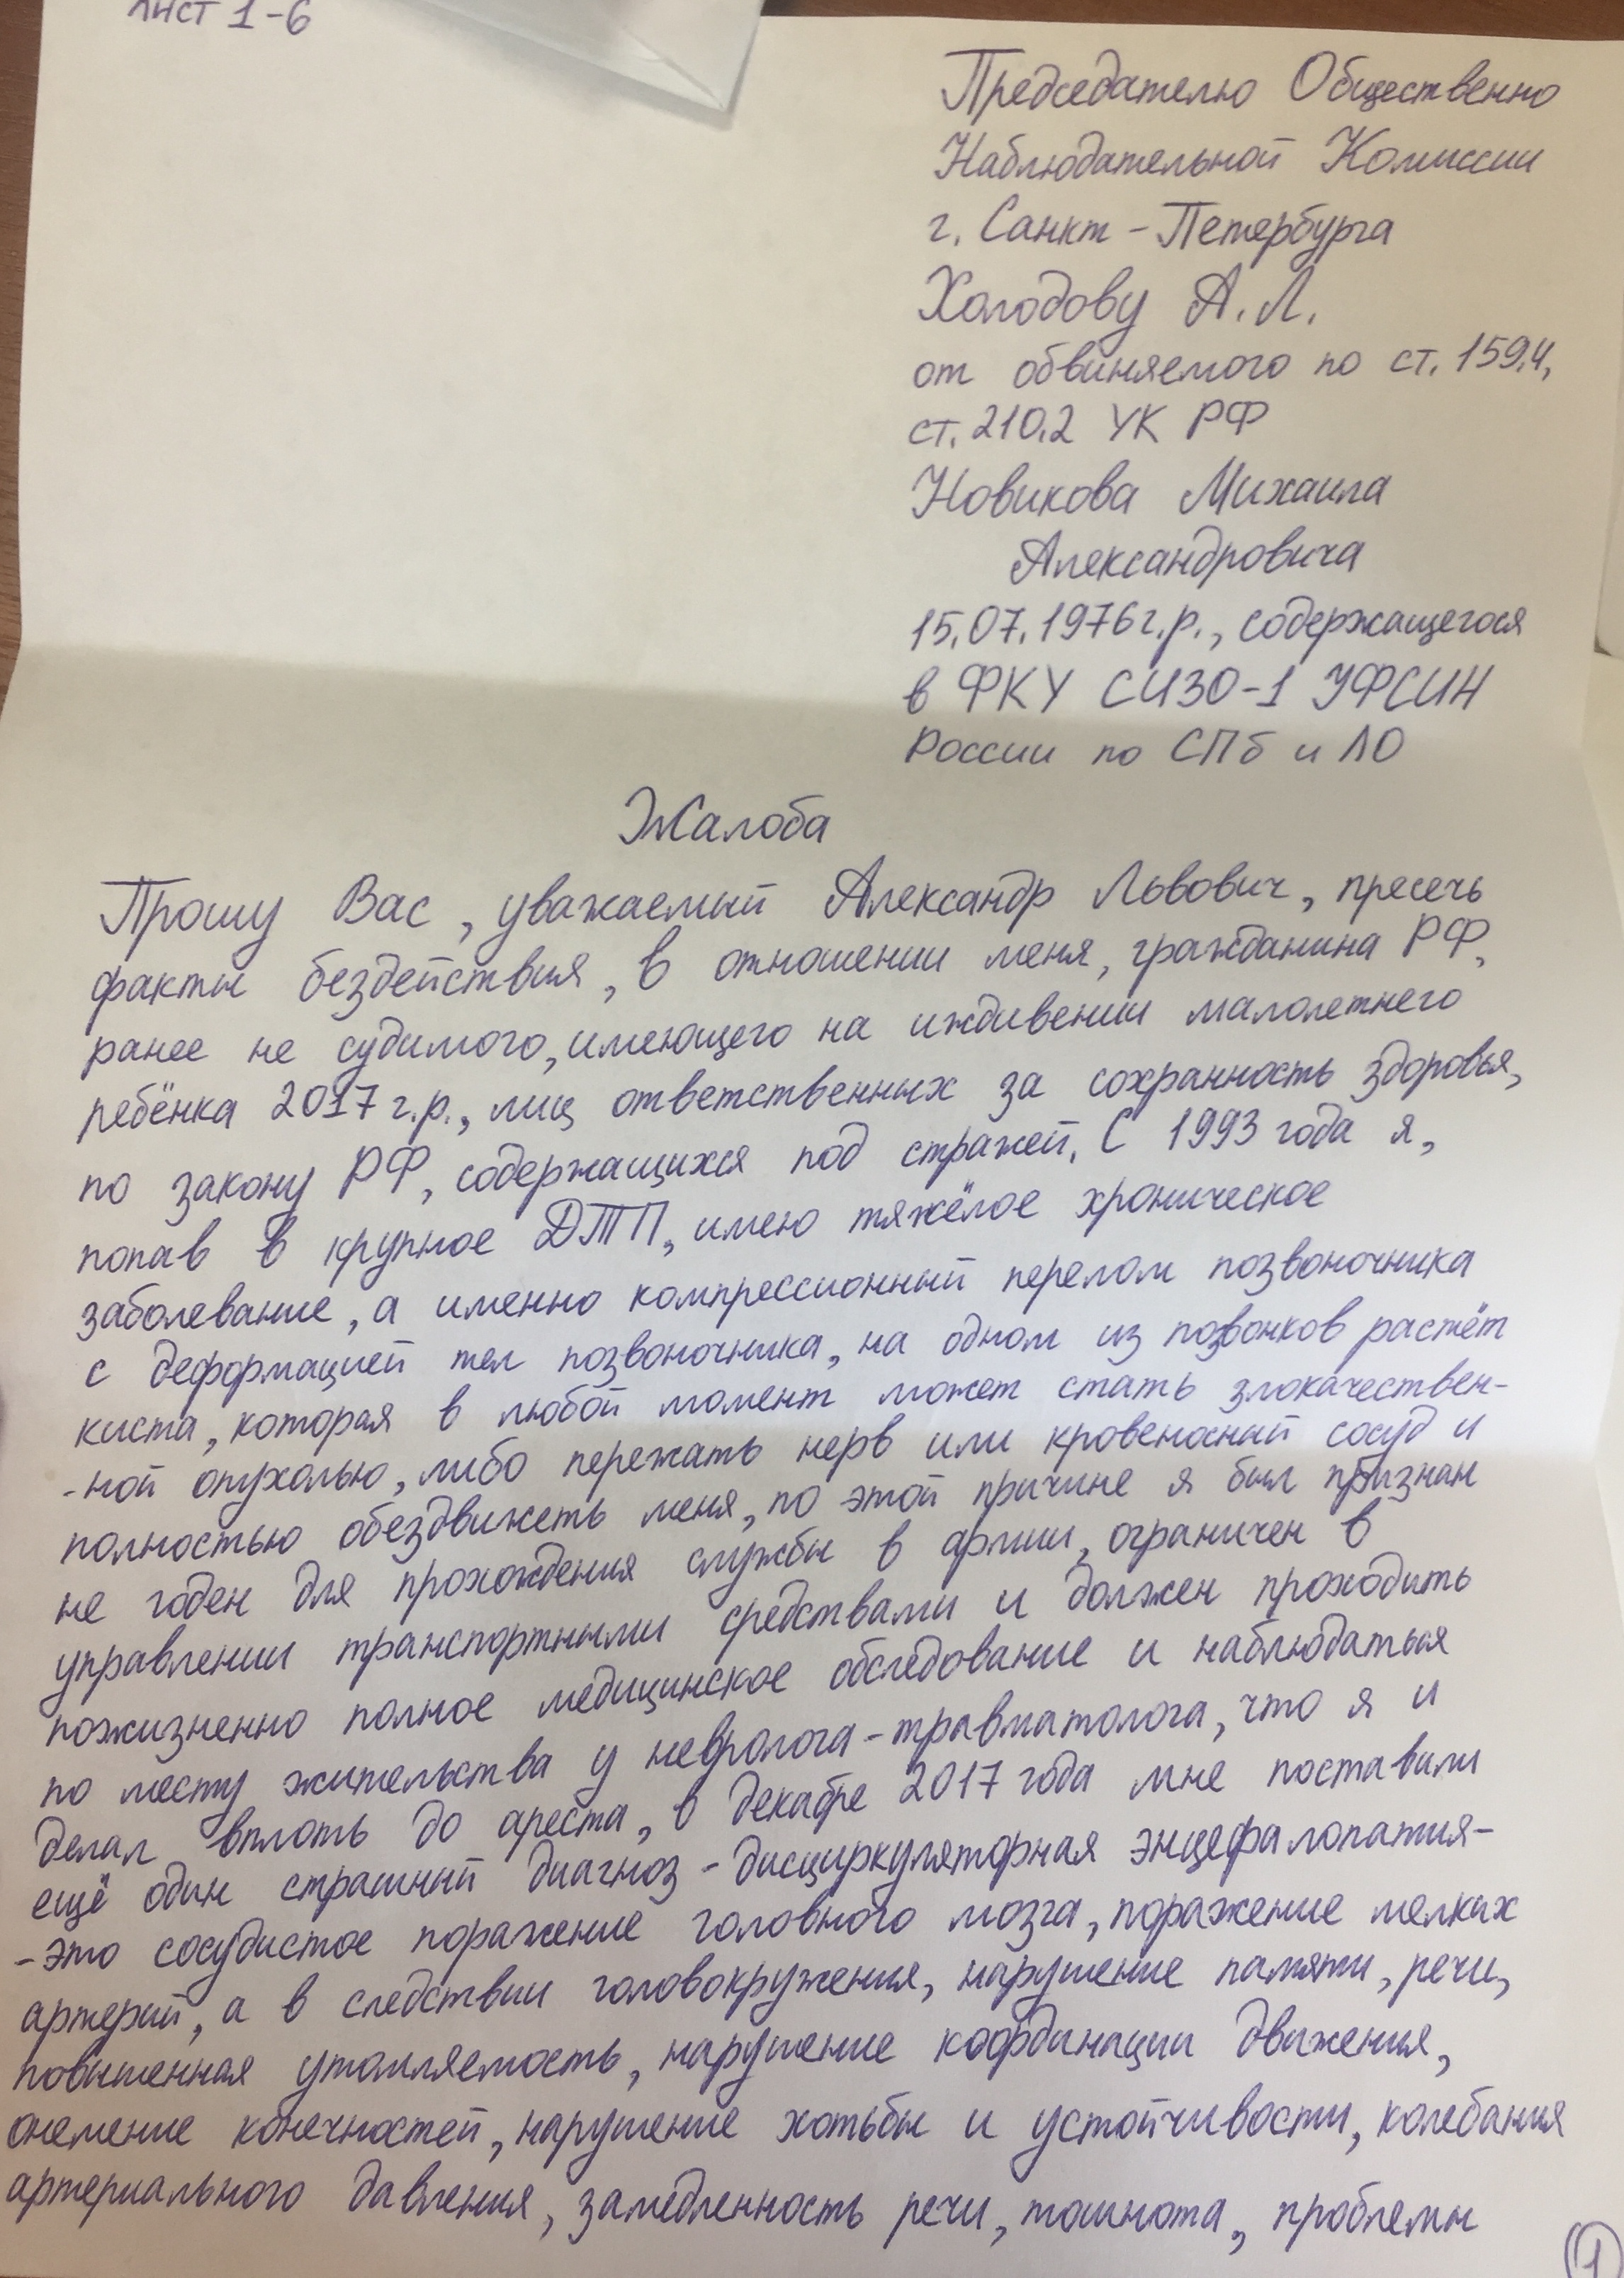 лист 1-6
Председателю Общественно
Наблюдательной Комиссии
г. Санкт-Петербурга
Холодову А.Л.
от обвиняемого по ст. 159.4,
ст. 210.2 УК РФ
Новикова Михаила
Александровича
15.07.1976 г.р., содержащегося
в ФКУ СИЗО-1 УФСИН
России по СПб и ЛО
Жалоба
Прошу Вас, уважаемый Александр Львович, пресечь
факты бездействия, в отношении меня, гражданина РФ,
ранее не судимого, имеющего на иждивении малолетнего
ребёнка 2017 г.р., лиц ответственных за сохранность здоровья,
по закону РФ, содержащихся под стражей. С 1993 года я,
попав в крупное ДТП, имею тяжёлое хроническое
заболевание, а именно компрессионный перелом позвоночника
с деформацией тел позвоночника, на одном из позвонков растёт
киста, которая в любой момент может стать злокачествен-
-ной опухолью, либо пережать нерв или кровеносный сосуд и
полностью обездвижеть меня, по этой причине я был признан
не годен для прохождения службы в армии, ограничен в
управлении транспортными средствами и должен проходить
пожизненно полное медицинское обследование и наблюдаться
по месту жительства у невролога-травматолога, что я и
делал вплоть до ареста, в декабре 2017 года мне поставили
ещё один страшный диагноз - дисциркуляторная энцефалопатия-
-это сосудистое поражение головного мозга, поражение мелких
артерий, а в следствии головокружения, нарушение памяти, речи,
повышенная утомляемость, нарушение координации движения,
онемение конечностей, нарушение хотьбы и устойчивости, колебания
артериального давления, замедленность речи, тошнота, проблемы
1